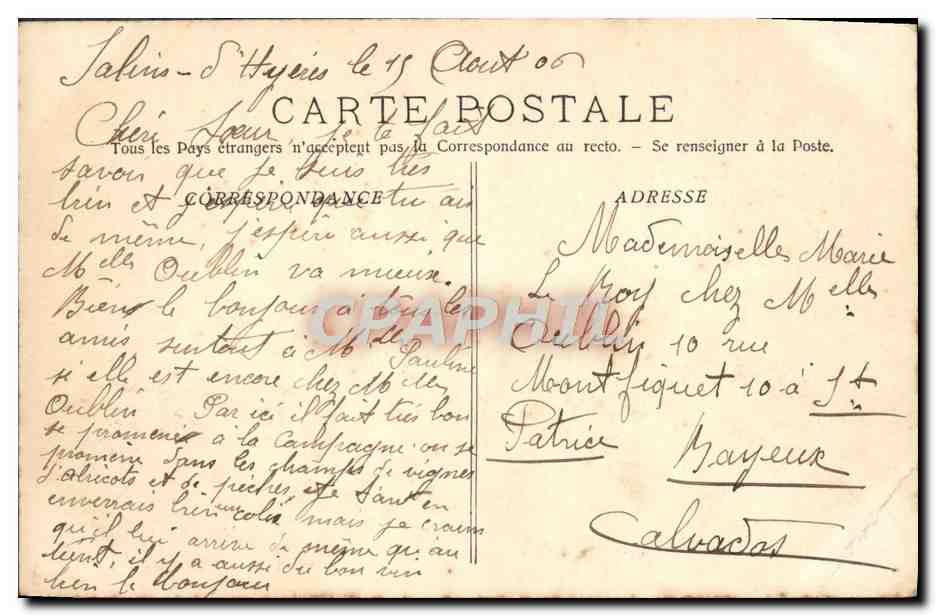 Salins-d'Hyères le 15 Aout 06
CARTE POSTALE
Chère Sœur je te fait
Tous les Pays étrangers n'acceptent pas la Correspondance au recto. - Se renseigner à la Poste.
savoir que je suis très
CORRESPONDANCE
bien et j'espère que tu as
de même, j'espère aussi que
Melles Oublin va mieux.
Bien le bonjour à tous les
amis surtout à Melle Pauline
si elle est encore chez Melles
Oublin Par ici il fait très bon
se promener à la Campagne on se
promène dans les champs de vignes
d'abricots et de pêches, je t'en
enverrais bien un colis mais je crains
qu'il lui arrive de même qu'au
, il y a aussi du bon vin
bien le bonjour
ADRESSE
Mademoiselles Marie
Le Roy chez Melles
Oublin 10 rue
Montfiquet 10 à St
Patrice
Bayeux
Calvados
CPAPHIL